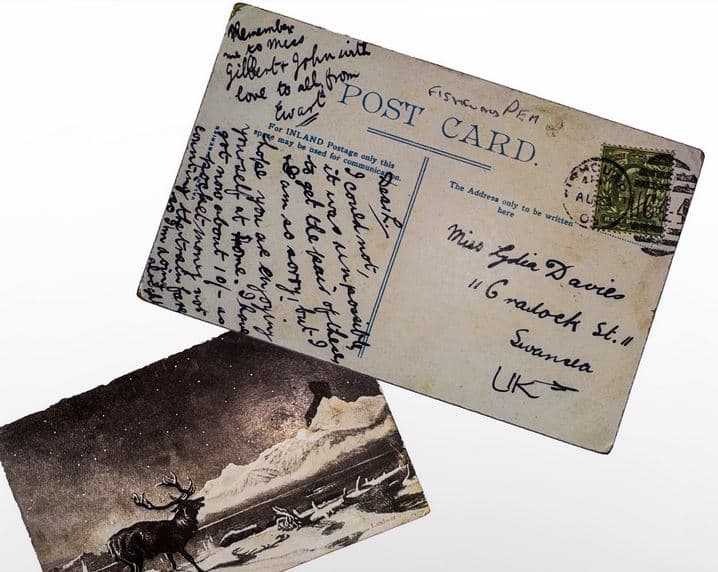 Remember
me to Miss
Gilbert & John with
love to all from
Ewart
POST CARD.
For INLAND Postage only this
space may be used for communication.
The Address only to be written
here
Dear L
I could not,
it was impossible
to get the pair of these
I am so sorry! but I
hope you are enjoying
yourself at Home. I have
got now about 10/- as
pocket money not
counting the train fare
Miss Lydia Davies
11 Cradock St.
Swansea
UK